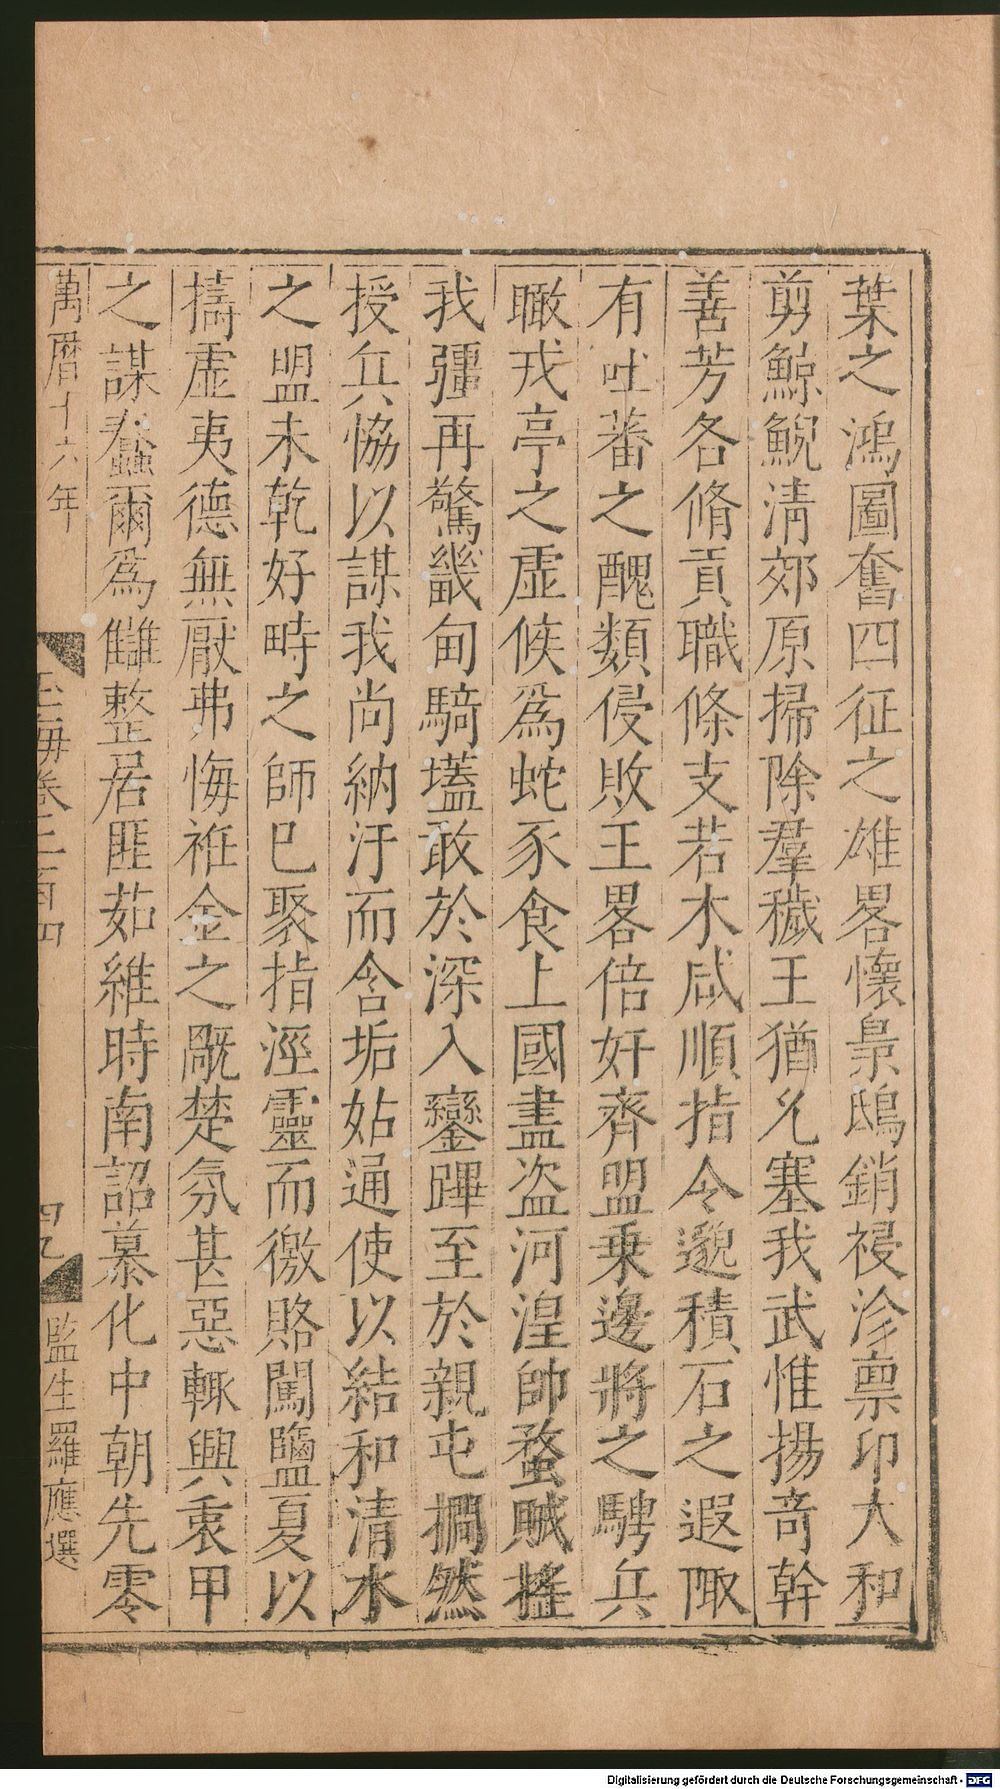 葉之鴻圖奮四征之雄畧懷梟鴟銷祲沴禀卬大和
剪鯨鯢淸郊原掃除羣穢王猶允塞我武惟揚竒幹
善芳各脩貢職條支若木咸順指令邈積石之遐陬
有吐蕃之醜類侵敗王畧倍奸齊盟乗邊將之騁兵
瞰戎亭之虛候爲蛇豕食上國盡盜河湟帥蝥賊搖
我疆再驚畿甸騎壒敢於深入鑾蹕至於親屯撊然
授兵恊以謀我尚納汙而含垢姑通使以結和清水
之盟未乾好畤之師巳聚指涇靈而徼賂闖鹽夏以
擣虛夷德無厭弗悔袵金之剛楚氛甚惡輙興衷甲
之謀蠢爾爲讎整居匪茹維時南詔慕化中朝先零
萬曆十六年
玉海卷二百四
四九
監生羅應選
Digitalisierung gefördert durch die Deutsche Forschungsgemeinschaft - DFG